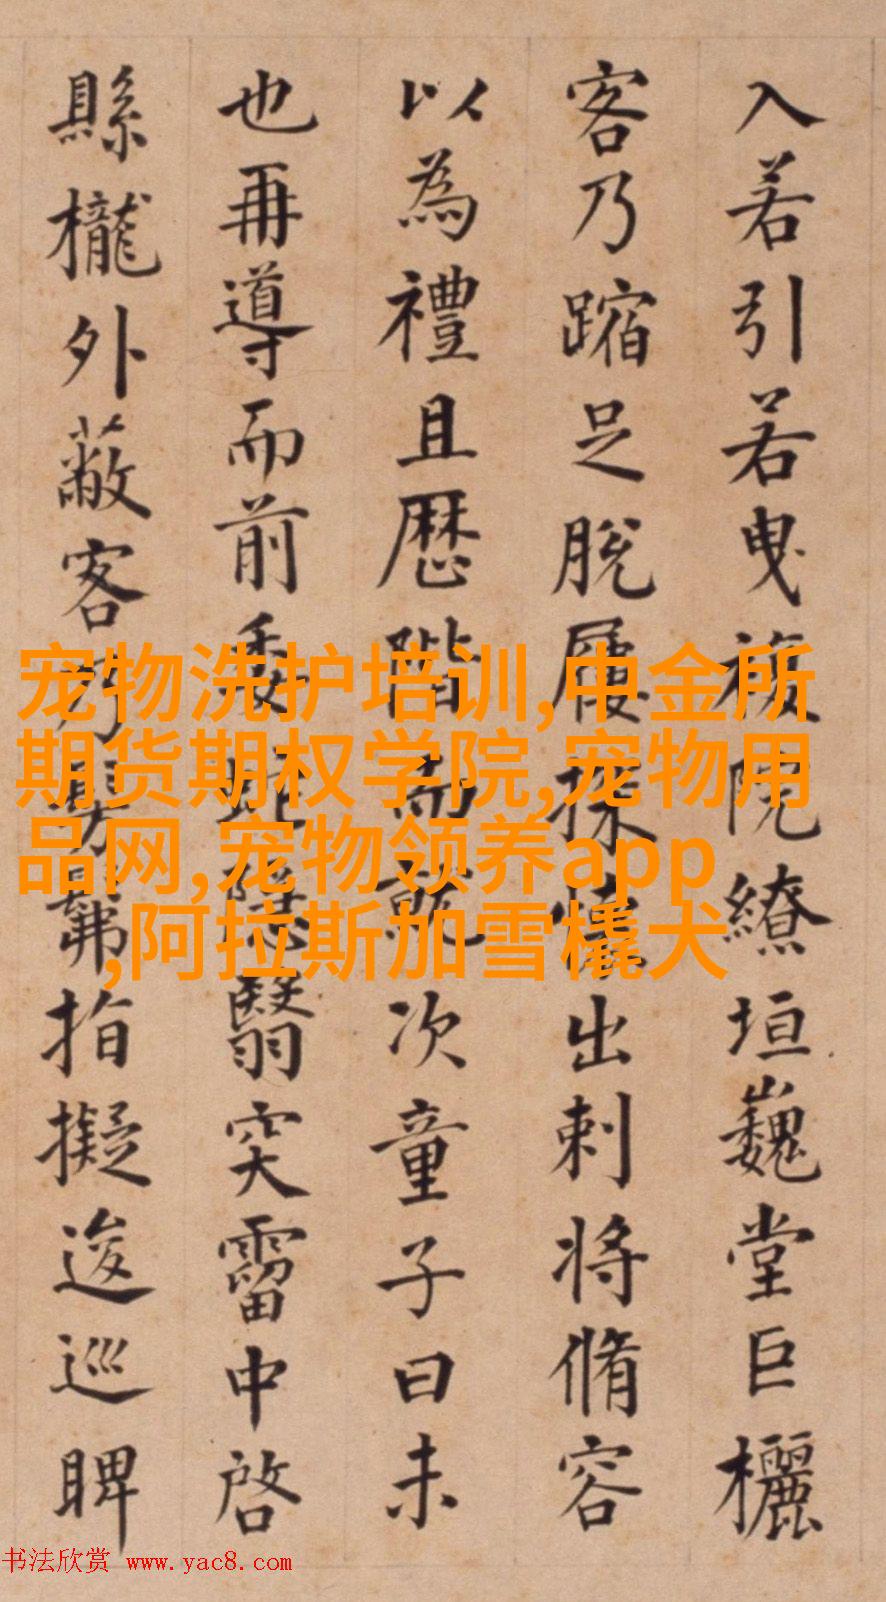 入若引若曳複院繚垣巍堂巨欐
客乃蹜足脫屨探懷出刺將脩容
以為禮且歷階而就次童子曰未
也再導而前委蛇隱翳突霤中啓
縣櫳外蔽客乃髣髴指擬逡巡睥
宠物洗护培训,中金所
期货期权学院,宠物用
品网,宠物领养app
,阿拉斯加雪橇犬
书法欣赏 www.yac8.com